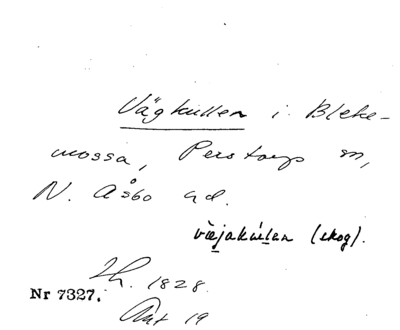 Vägkullen i Bleke-
mossa, Perstorp sn,
N. Åsbo hd.
vægjakúlen (skog).
Lh. 1828.
Nr 7327.
Akt 19